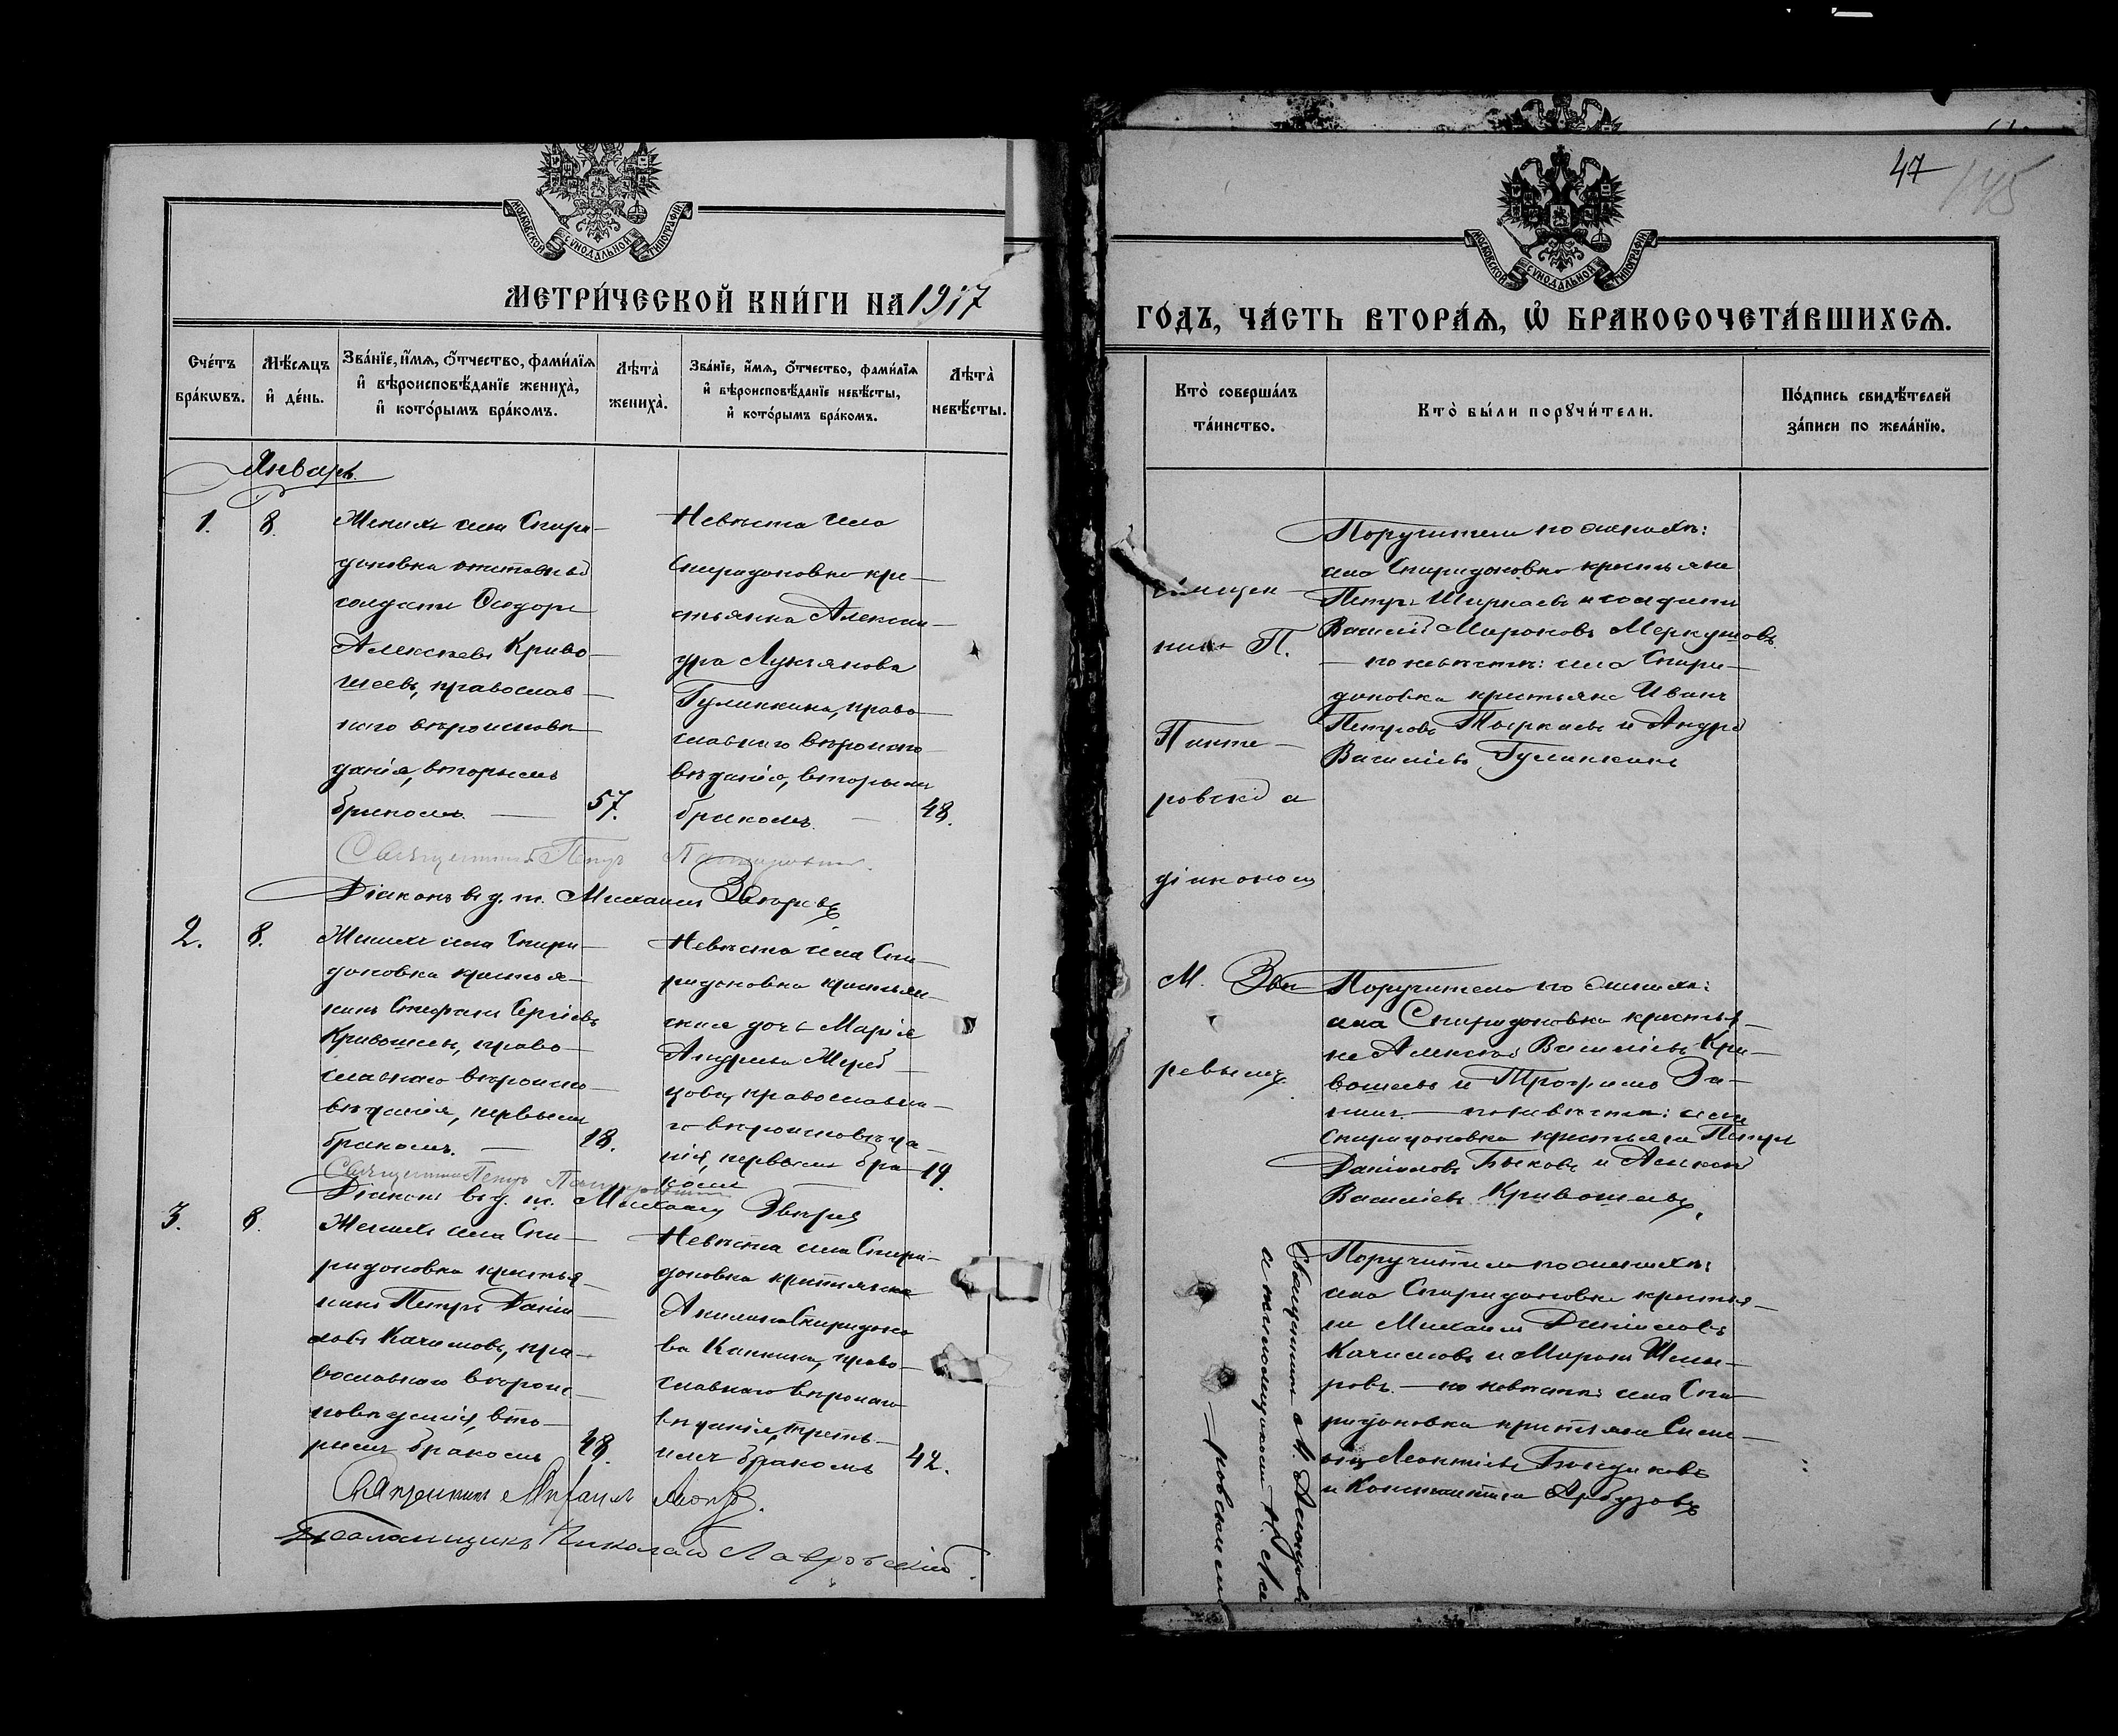 МОСКОВСКОЙ СУНОДАЛЬНОЙ ТИПОГРАФІИ
МЕТРИ́ЧЕСКОЙ КНИ́ГИ НА 1917
Сче́тъ бра́кѡвъ.
Мѣ́сѧцъ и҆ де́нь.
Зва́нїе, и҆́мѧ, ѻ҆́тчество, фами́лїѧ
и҆ вѣроисповѣ́данїе жениха̀,
и҆ кото́рымъ бра́комъ.
Лѣта̀ жениха̀.
Зва́нїе, и҆́мѧ, ѻ҆́тчество, фами́лїѧ
и҆ вѣроисповѣ́данїе невѣ́сты,
и҆ кото́рымъ бра́комъ.
Лѣта̀ невѣ́сты.
Январь.
1.
8.
Женихъ села Спири-
доновка отставной
солдатъ Сидоръ
Алексѣевъ Криво-
шеевъ, православ-
наго вѣроисповѣ-
данія, вторымъ
бракомъ. —
57.
Невѣста села
Спиридоновка кре-
стьянка Алексан-
дра Лукьянова
Гулинкина, право-
славнаго вѣроиспо-
вѣданія, вторымъ
бракомъ. —
48.
Священникъ Петръ
Діаконъ в д. п. Михаилъ Звѣревъ
2.
8.
Женихъ села Спири-
доновка крестья-
нинъ Стефанъ Сергіевъ
Кривошеевъ, право-
славнаго вѣроиспо-
вѣданія, первымъ
бракомъ. —
18.
Невѣста села Спи-
ридоновка крестьян-
ская дочь Марія
Андреева Жереб-
цова, православна-
го вѣроисповѣда-
нія, первымъ бра-
комъ
19.
Священникъ Петръ
Діаконъ в д. п. Михаилъ Звѣревъ
3.
8.
Женихъ села Спи-
ридоновка крестья-
нинъ Петръ Даніи-
ловъ Качимовъ, пра-
вославнаго вѣроис-
повѣданія, вто-
рымъ бракомъ
48.
Невѣста села Спири-
доновка крестьянка
Акилина Спиридоно
ва Канкина, право-
славнаго вѣроиспо
вѣданія, треть-
имъ бракомъ
42.
Священникъ Михаилъ
Псаломщикъ Николай Лавровскій.
47
145
МОСКОВСКОЙ СУНОДАЛЬНОЙ ТИПОГРАФІИ
ГО́ДЪ, ЧА́СТЬ ВТОРА́Ѧ, Ѽ БРАКОСОЧЕТА́ВШИХСѦ.
Кто̀ соверша́лъ
та́инство.
Кто̀ бы́ли порꙋчи́тели.
По́дпись свидѣ́телей
за́писи по жела́нїю.
Священ-
никъ П.
ровскій а
діакономъ
М. Звѣ
ревымъ.
Поручители по женихѣ:
села Спиридоновка крестьяне
Петръ Ширкаевъ и солдатъ
Василій Мироновъ Меркушовъ
— по невѣстѣ: села Спири-
доновка крестьяне Иванъ
Петровъ Тыркаевъ и Андрей
Василіевъ Гулинкинъ
Поручители по женихѣ:
села Спиридоновка крестья-
не Алексѣй Василіевъ Кри-
вошеевъ и Трофимъ За-
— по невѣстѣ: села
Спиридоновка крестьяне Петръ
Даніиловъ Быковъ и Алексѣй
Василіевъ Кривошеевъ.
Священникъ о М.
и псаломщикомъ Н. Ла
— ровскимъ
Поручители по женихѣ:
села Спиридоновка крестья-
не Михаилъ Даніиловъ
Качимовъ и Миронъ
ровъ. — по невѣстѣ: села Спи-
ридоновка крестьяне
Леонтіевъ
и Константинъ Арбузовъ